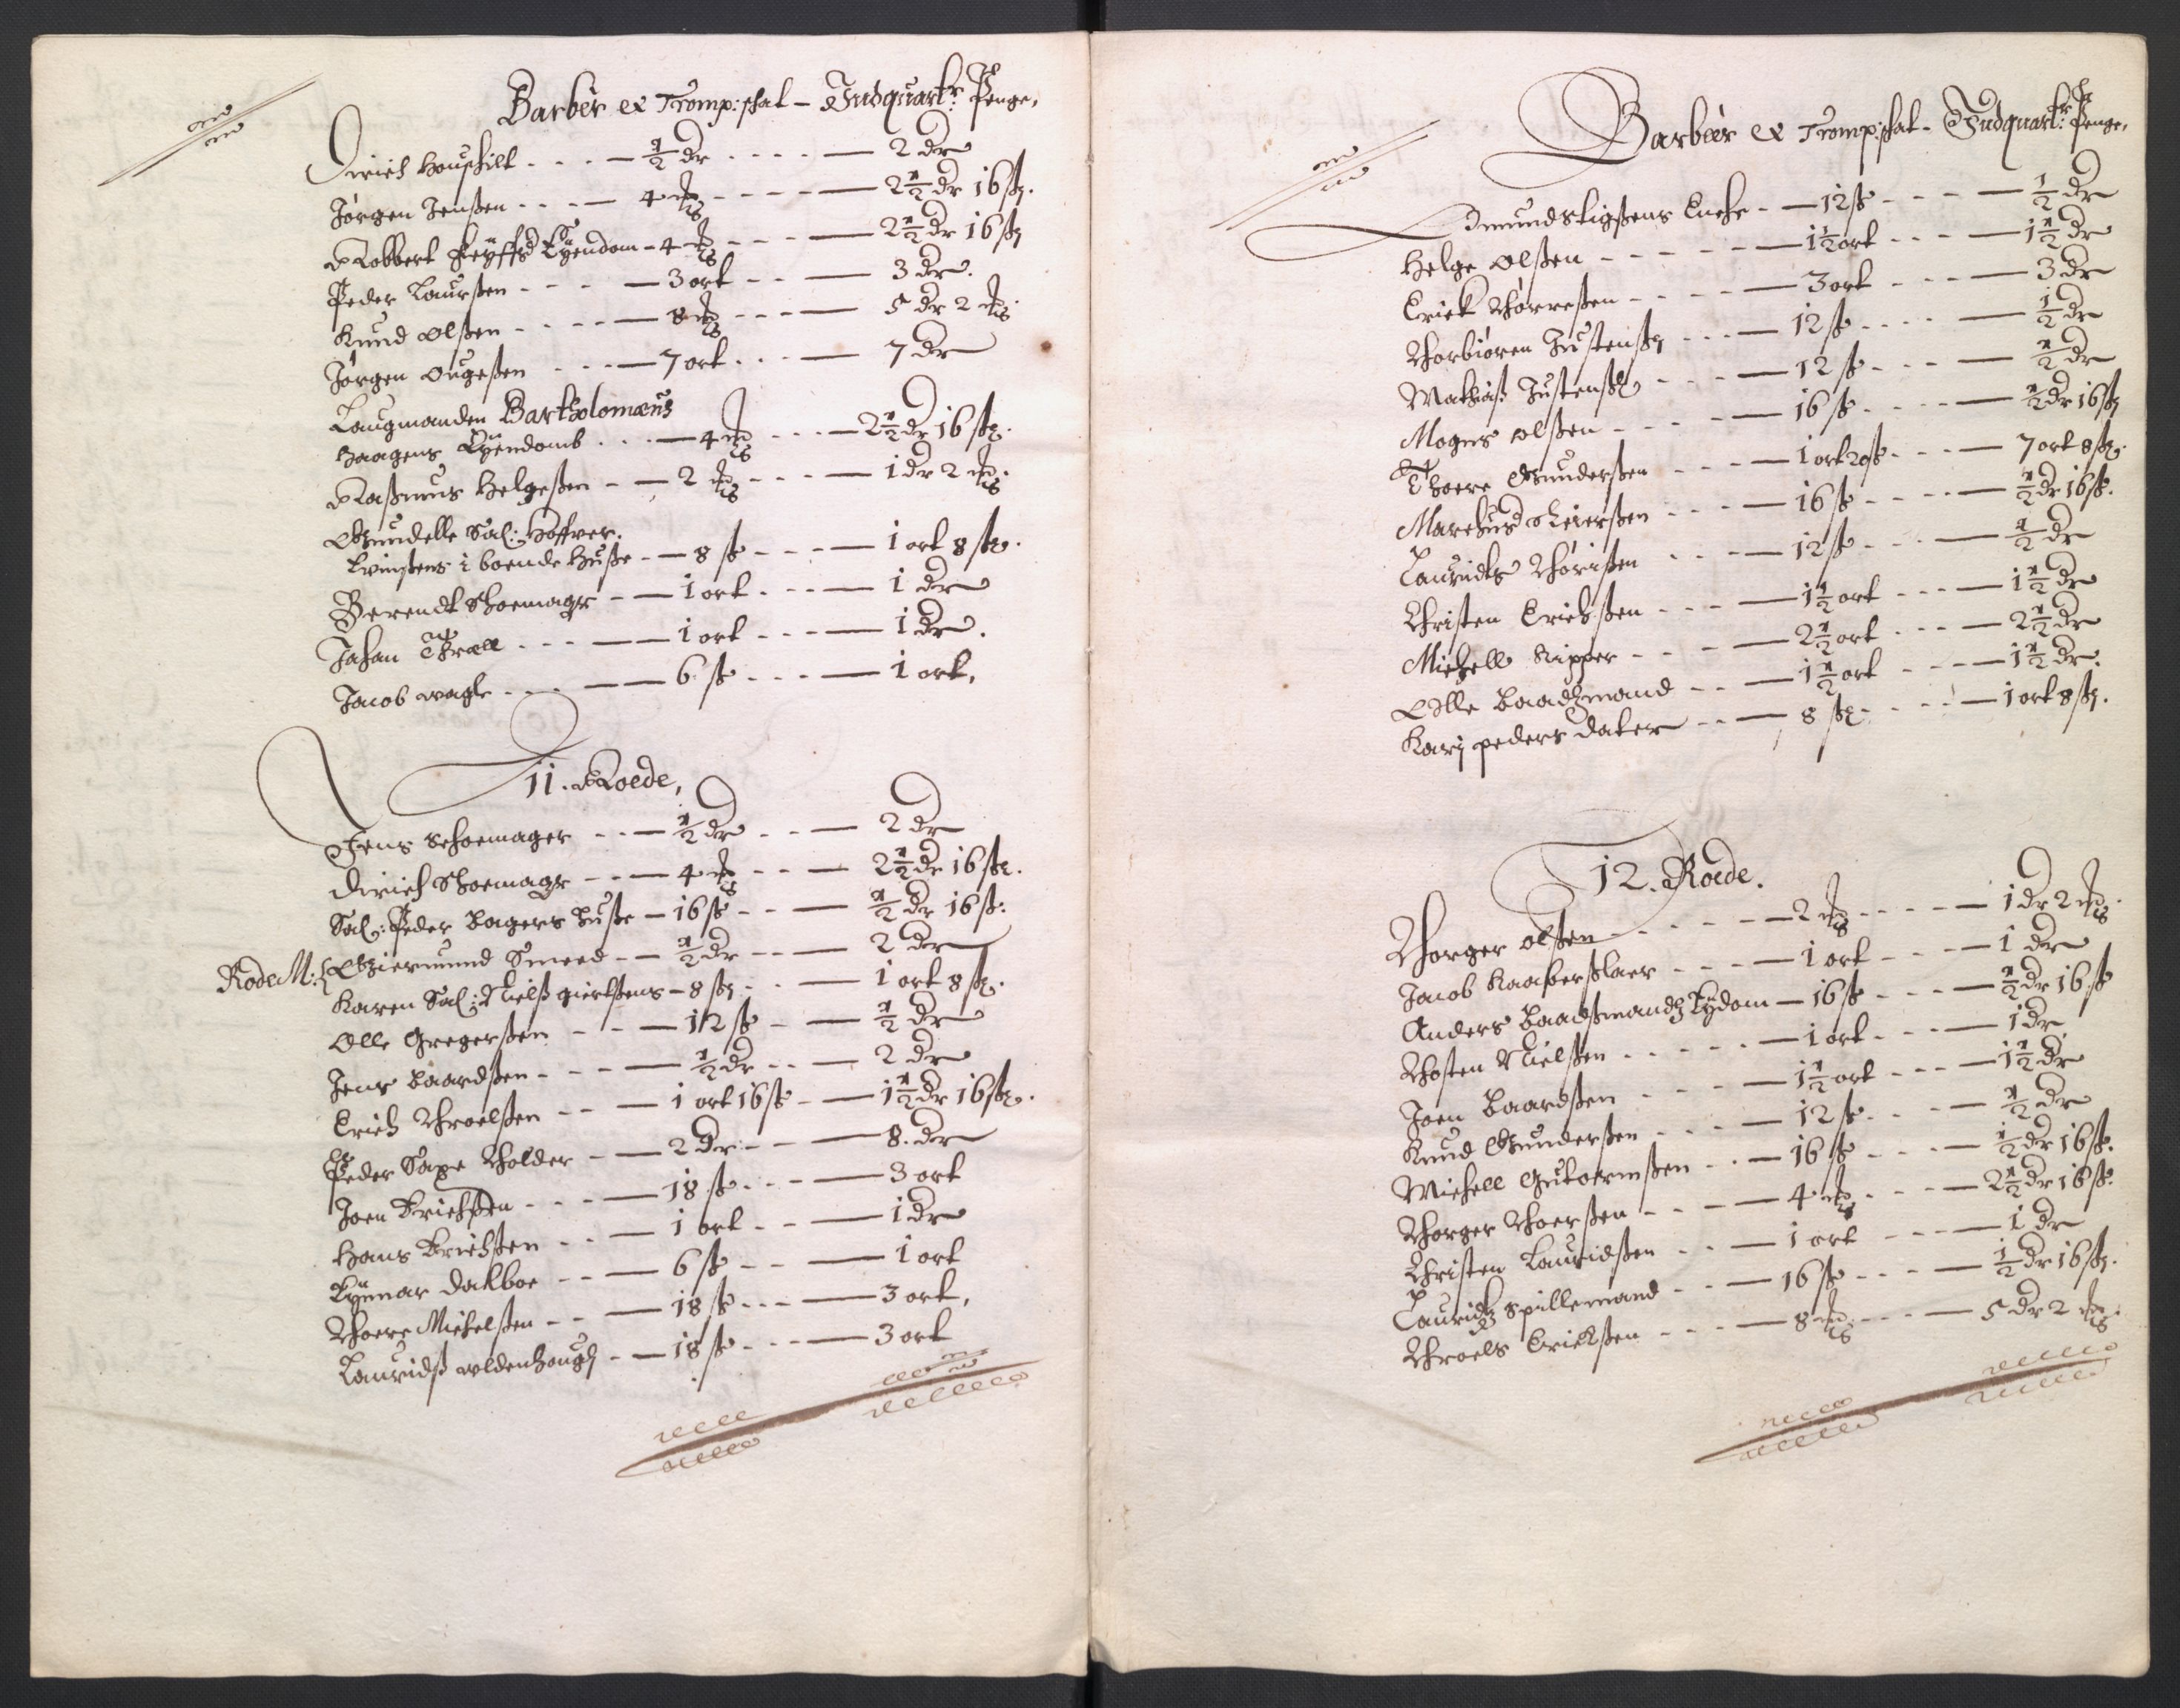 Barber et Tromp: schat - Indquartr: Penge,
Dirich Houschilt - - - ½ dr - - - 2 dr
Jørgen Jensen - - - 4 mk - - - 2½ dr 16 ß.
Robbert Feyffs Eyendom - 4 mk - - - 2½ dr 16 ß
Peder Laursen - - - 3 ort - - - 3 dr.
Knud Olsen - - - 8 mk - - - 5 dr 2 mk.
Jørgen Ougesen - - - 7 ort - - - 7 dr
Laugmanden Bartholomæus
Haagens Eyendomb - - - 4 mk - - - 2½ dr 16 ß.
Rasmus Helgesen - - - 2 mk - - - 1 dr 2 mk.
Gundelle Sal: Hoffver.
Evinsens i boende Huße - 8 ß - - - 1 ort 8 ß.
Berendt Schoemagr - - 1 ort - - - 1 dr
Johan Træll - - - 1 ort - - - 1 dr.
Jacob wagle - - - 6 ß - - - 1 ort,
11. Roede,
Jens Schoemager - - - ½ dr - - - 2 dr
Dirich Schoemagr - - - 4 mk - - - 2½ dr 16 ß.
Sal: Peder Bagers Huße - 16 ß - - - ½ dr 16 ß:
Rode M: Giermund Smeed - - ½ dr - - - 2 dr
Karen Sal: Nielß giertsens - 8 ß - - - 1 ort 8 ß.
Olle Gregersen - - - 12 ß - - - ½ dr
Jens Baardsen - - - ½ dr - - - 2 dr
Erich Throelsen - - - 1 ort 16 ß - - 1½ dr 16 ß.
Peder Saxe Tholder - - 2 dr - - - 8. dr
Joen Erichsen - - - 18 ß - - - 3 ort
Hans Erichsen - - - 1 ort - - - 1 dr
Eynnar Dakboe - - - 6 ß - - - 1 ort
Thoere Michelsen - - - 18 ß - - - 3 ort,
Lauridß woldenhough - - 18 ß - - - 3 ort
Barbeer et Tromp: schat - Indquartr: Penge,
Amund Stigsens Enche - - 12 ß - - - ½ dr
Helge Olsen - - - 1½ ort - - - 1½ dr
Erick Thorresen - - - 3 ort - - - 3 dr
Thorbiøren Justensß - - - 12 ß - - - ½ dr
Mathiaß Justensß - - - 12 ß - - - ½ dr
Mogns Olsen - - - 16 ß - - - ½ dr 16 ß
Thoere Gundersen - - - 1 ort 20 ß - - - 7 ort 8 ß.
Marchus Reiersen - - - 16 ß - - - ½ dr 16 ß.
Lauridts Thorisen - - - 12 ß - - - ½ dr
Christen Erichsen - - - 1½ ort - - - 1½ dr
Michell Kipper - - - 2½ ort - - - 2½ dr
Olle Baadzmand - - - 1½ ort - - - 1½ dr.
Karj peders dater - - 8 ß - - - 1 ort 8 ß.
12. Roede.
Thorger Olsen - - - 2 mk - - - 1 dr 2 mk.
Jacob Kaaberslaer - - - 1 ort - - - 1 dr
Anders Baadsmandz Eydom - 16 ß - - - ½ dr 16 ß
Thosten Nielsen - - - 1 ort - - - 1 dr
Joen Baardsen - - - 1½ ort - - - 1½ dr
Knud Gundersen - - - 12 ß - - - ½ dr
Michell Gutoermsen - - 16 ß - - - ½ dr 16 ß.
Thorger Thoersen - - - 4 mk - - - 2½ dr 16 ß.
Christen Lauridsen - - 1 ort - - - 1 dr
Lauridz Spillemand - - 16 ß - - - ½ dr 16 ß.
Throels Ericksen - - - 8 mk - - - 5 dr 2 mk.